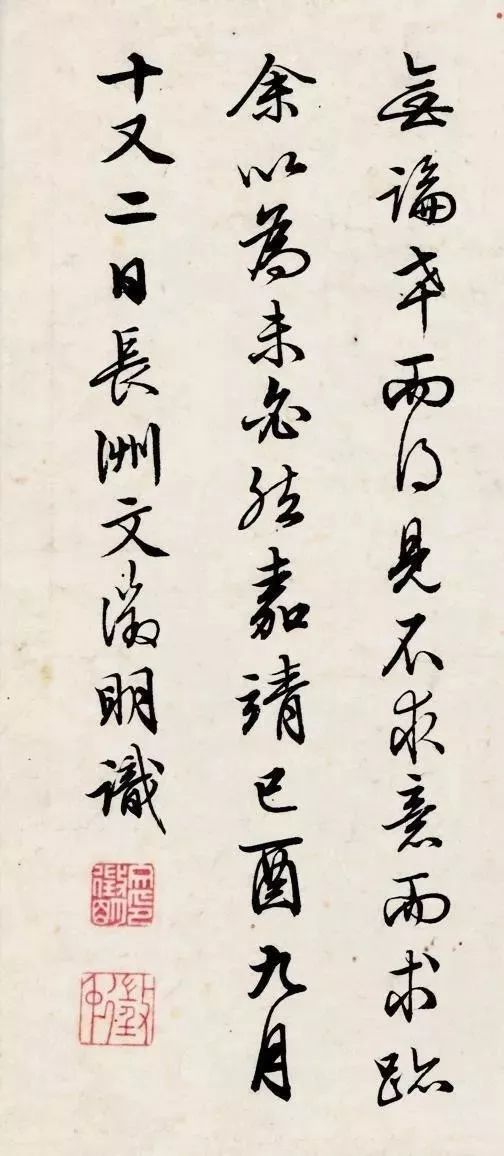 無論卒而得見不求意而求跡
余以為未必然嘉靖己酉九月
十又二日長洲文徵明識
徵仲